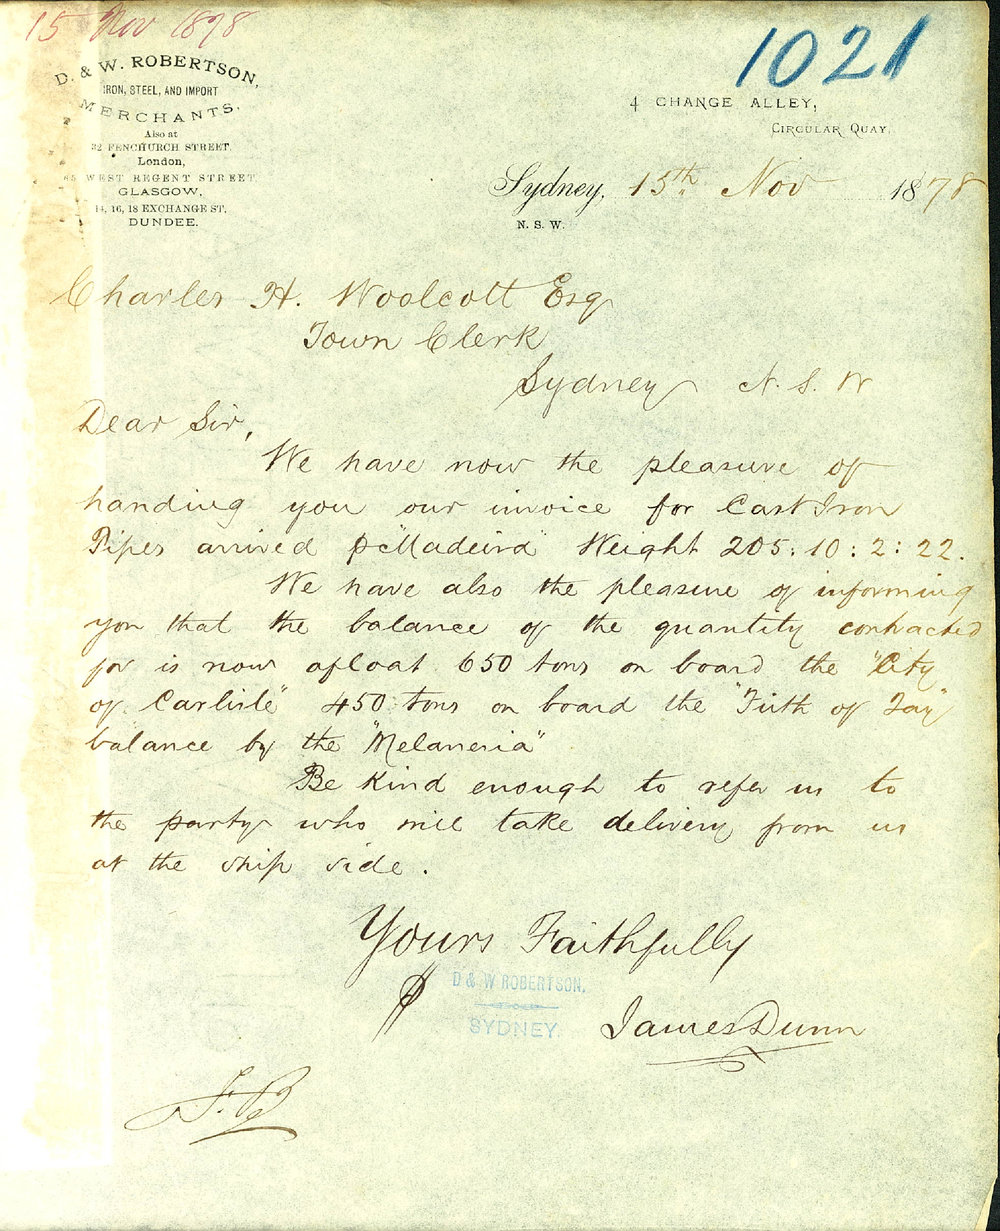 15 Nov 1878
1021
D. & W. ROBERTSON,
IRON, STEEL, AND IMPORT
MERCHANTS.
Also at
32 FENCHURCH STREET
London,
WEST REGENT STREET
GLASGOW,
14, 16, 18 EXCHANGE ST.
DUNDEE.
4 CHANGE ALLEY,
CIRCULAR QUAY,
Sydney, 15th Nov 1878
N. S. W.
Charles H. Woolcott Esq
Town Clerk
Sydney N. S. W
Dear Sir,
We have now the pleasure of
handing you our invoice for Cast Iron
Pipes arrived p "Madeira" Weight 205: 10: 2: 22.
We have also the pleasure of informing
you that the balance of the quantity contracted
for is now afloat 650 tons on board the "City
of Carlisle" 450 tons on board the "Firth of Tay"
balance by the "Melanesia"
Be kind enough to refer us to
the party who will take delivery from us
at the ship side.
Yours Faithfully
p
D & W ROBERTSON,
SYDNEY.
James Dunn